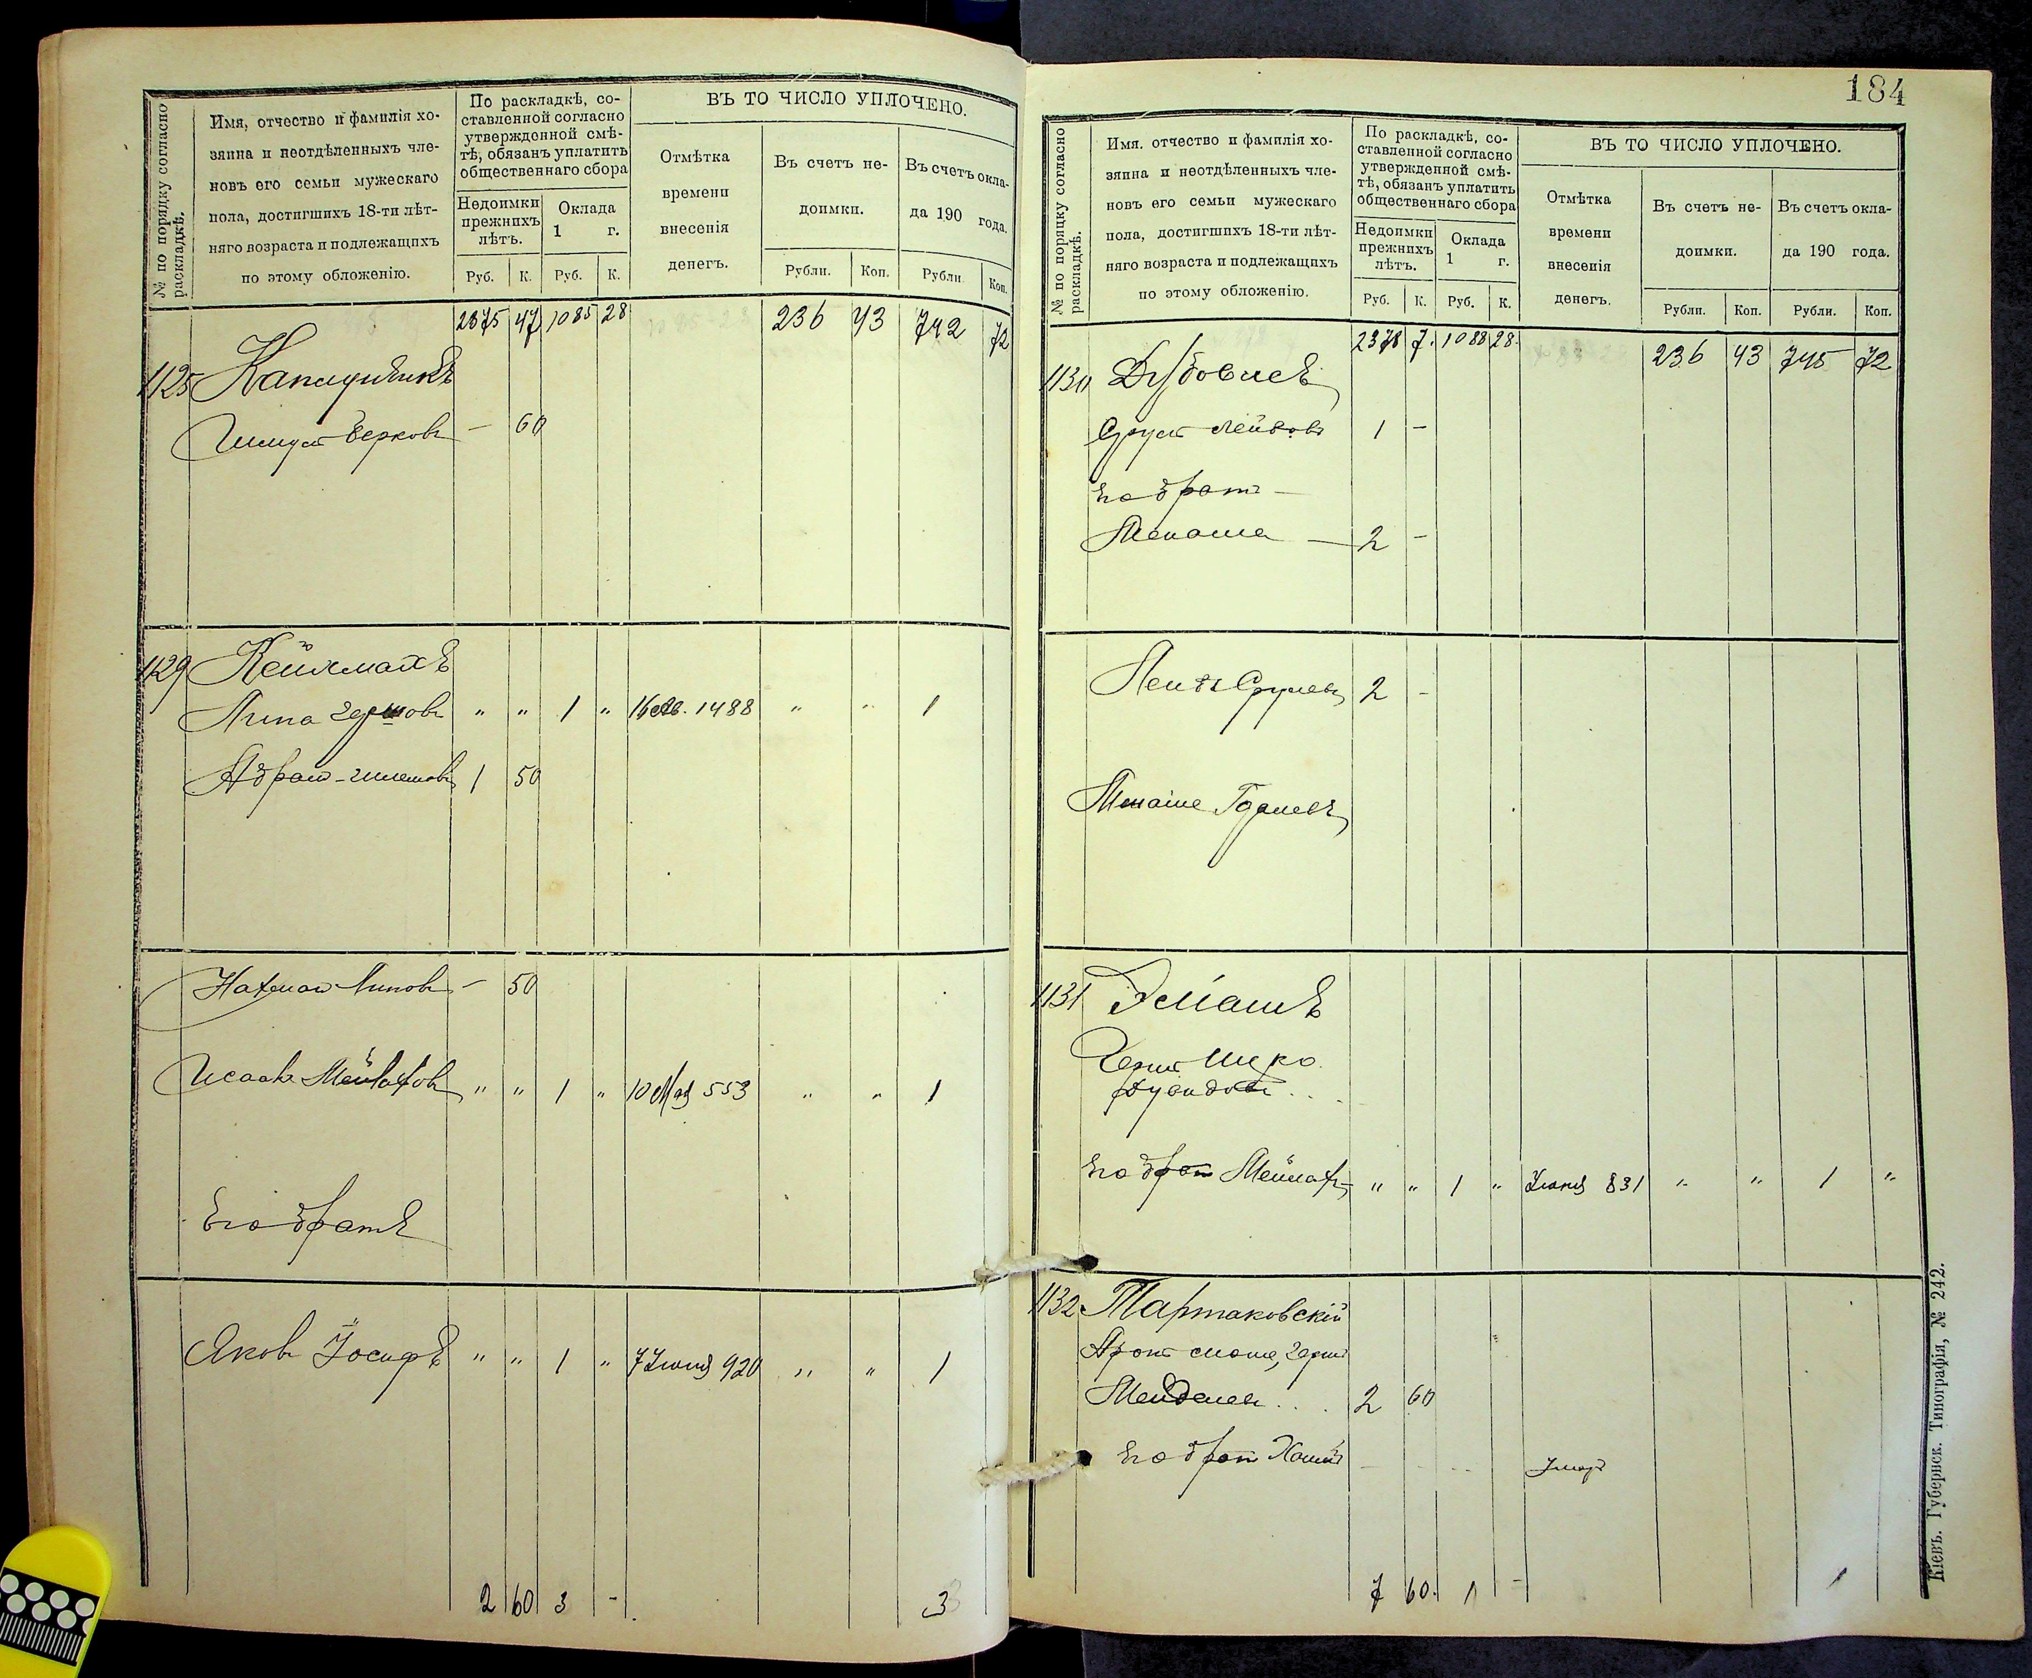 № по порядку согласно раскладкѣ.
Имя, отчество и фамилія хо-
зяина и неотдѣленныхъ чле-
новъ его семьи мужескаго
пола, достигшихъ 18-ти лѣт-
няго возраста и подлежащихъ
по этому обложенію.
По раскладкѣ, со-
ставленной согласно
утвержденной смѣ-
тѣ, обязанъ уплатить
общественнаго сбора
Недоимки
прежнихъ
лѣтъ.
Оклада
1 г.
Руб. К. Руб. К.
ВЪ ТО ЧИСЛО УПЛОЧЕНО.
Отмѣтка
времени
внесенія
денегъ.
Въ счетъ не-
доимки.
Въ счетъ окла-
да 190 года.
Рубли. Коп. Рубли Коп.
2375 47 1085 28 236 43 742 72
1125
Берковъ — 60
1129 Кейлманъ
Липа Гершовъ " " 1 " 1488 " " 1
Абрам 1 50
Нахман Липовъ — 50
Исаакъ Мейлаховъ " " 1 " 10 Мая 553 " " 1
Его братъ
Яковъ Іосифъ " " 1 " 7 Іюня 920 " " 1
2 60 3 - 3
184
№ по порядку согласно раскладкѣ.
Имя. отчество и фамилія хо-
зяина и неотдѣленныхъ чле-
новъ его семьи мужескаго
пола, достигшихъ 18-ти лѣт-
няго возраста и подлежащихъ
по этому обложенію.
По раскладкѣ, со-
ставленной согласно
утвержденной смѣ-
тѣ, обязанъ уплатить
общественнаго сбора
Недоимки
прежнихъ
лѣтъ.
Оклада
1 г.
Руб. К. Руб. К.
ВЪ ТО ЧИСЛО УПЛОЧЕНО.
Отмѣтка
времени
внесенія
денегъ.
Въ счетъ не-
доимки.
Въ счетъ окла-
да 190 года.
Рубли. Коп. Рубли. Коп.
2378 7. 1088 28. 236 43 745 72
1130 Дубовисъ
Сруль Лейбовъ 1 —
Его братъ —
Менаше — 2 —
Лейбъ Срулевъ 2 -
Менаше
1131
Герш
Его брат Мейлахъ " " 1 " 831 " " 1 "
1132 Тартаковскій
Мендель . . . 2 60
Его брат Хаимъ Умеръ
7 60. 1 - 1
Кіевъ. Губернск. Типографія, № 242.